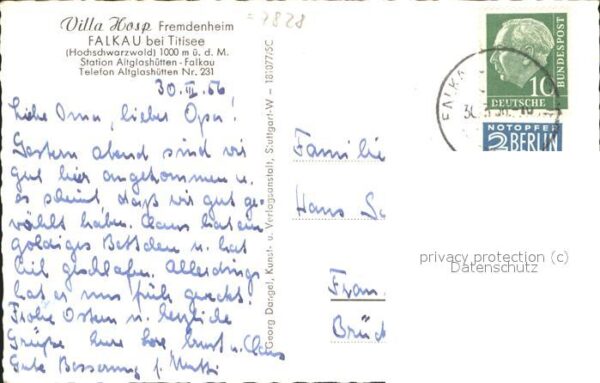 7828
Villa Hosp Fremdenheim
FALKAU bei Titisee
(Hochschwarzwald) 1000 m ü. d. M.
Station Altglashütten - Falkau
Telefon Altglashütten Nr. 231
30. III. 56
Liebe Oma, lieber Opa!
Gestern abend sind wir
gut hier angekommen u.
es scheint daß wir gut ge-
wählt haben. Claus hat ein
goldiges Bettchen u. hat
geschlafen. Allerdings
hat es uns früh geweckt.
Frohe Ostern u. herzliche
Grüße Eure Lore, Ernst u. Claus
Gute Besserung f. Mutti
Georg Dargel, Kunst- u. Verlagsanstalt, Stuttgart-W - 181077/5C
Familie
Hans
Brück
FALKA
10
DEUTSCHE
BUNDESPOST
NOTOPFER
2 BERLIN
privacy protection (c)
Datenschutz